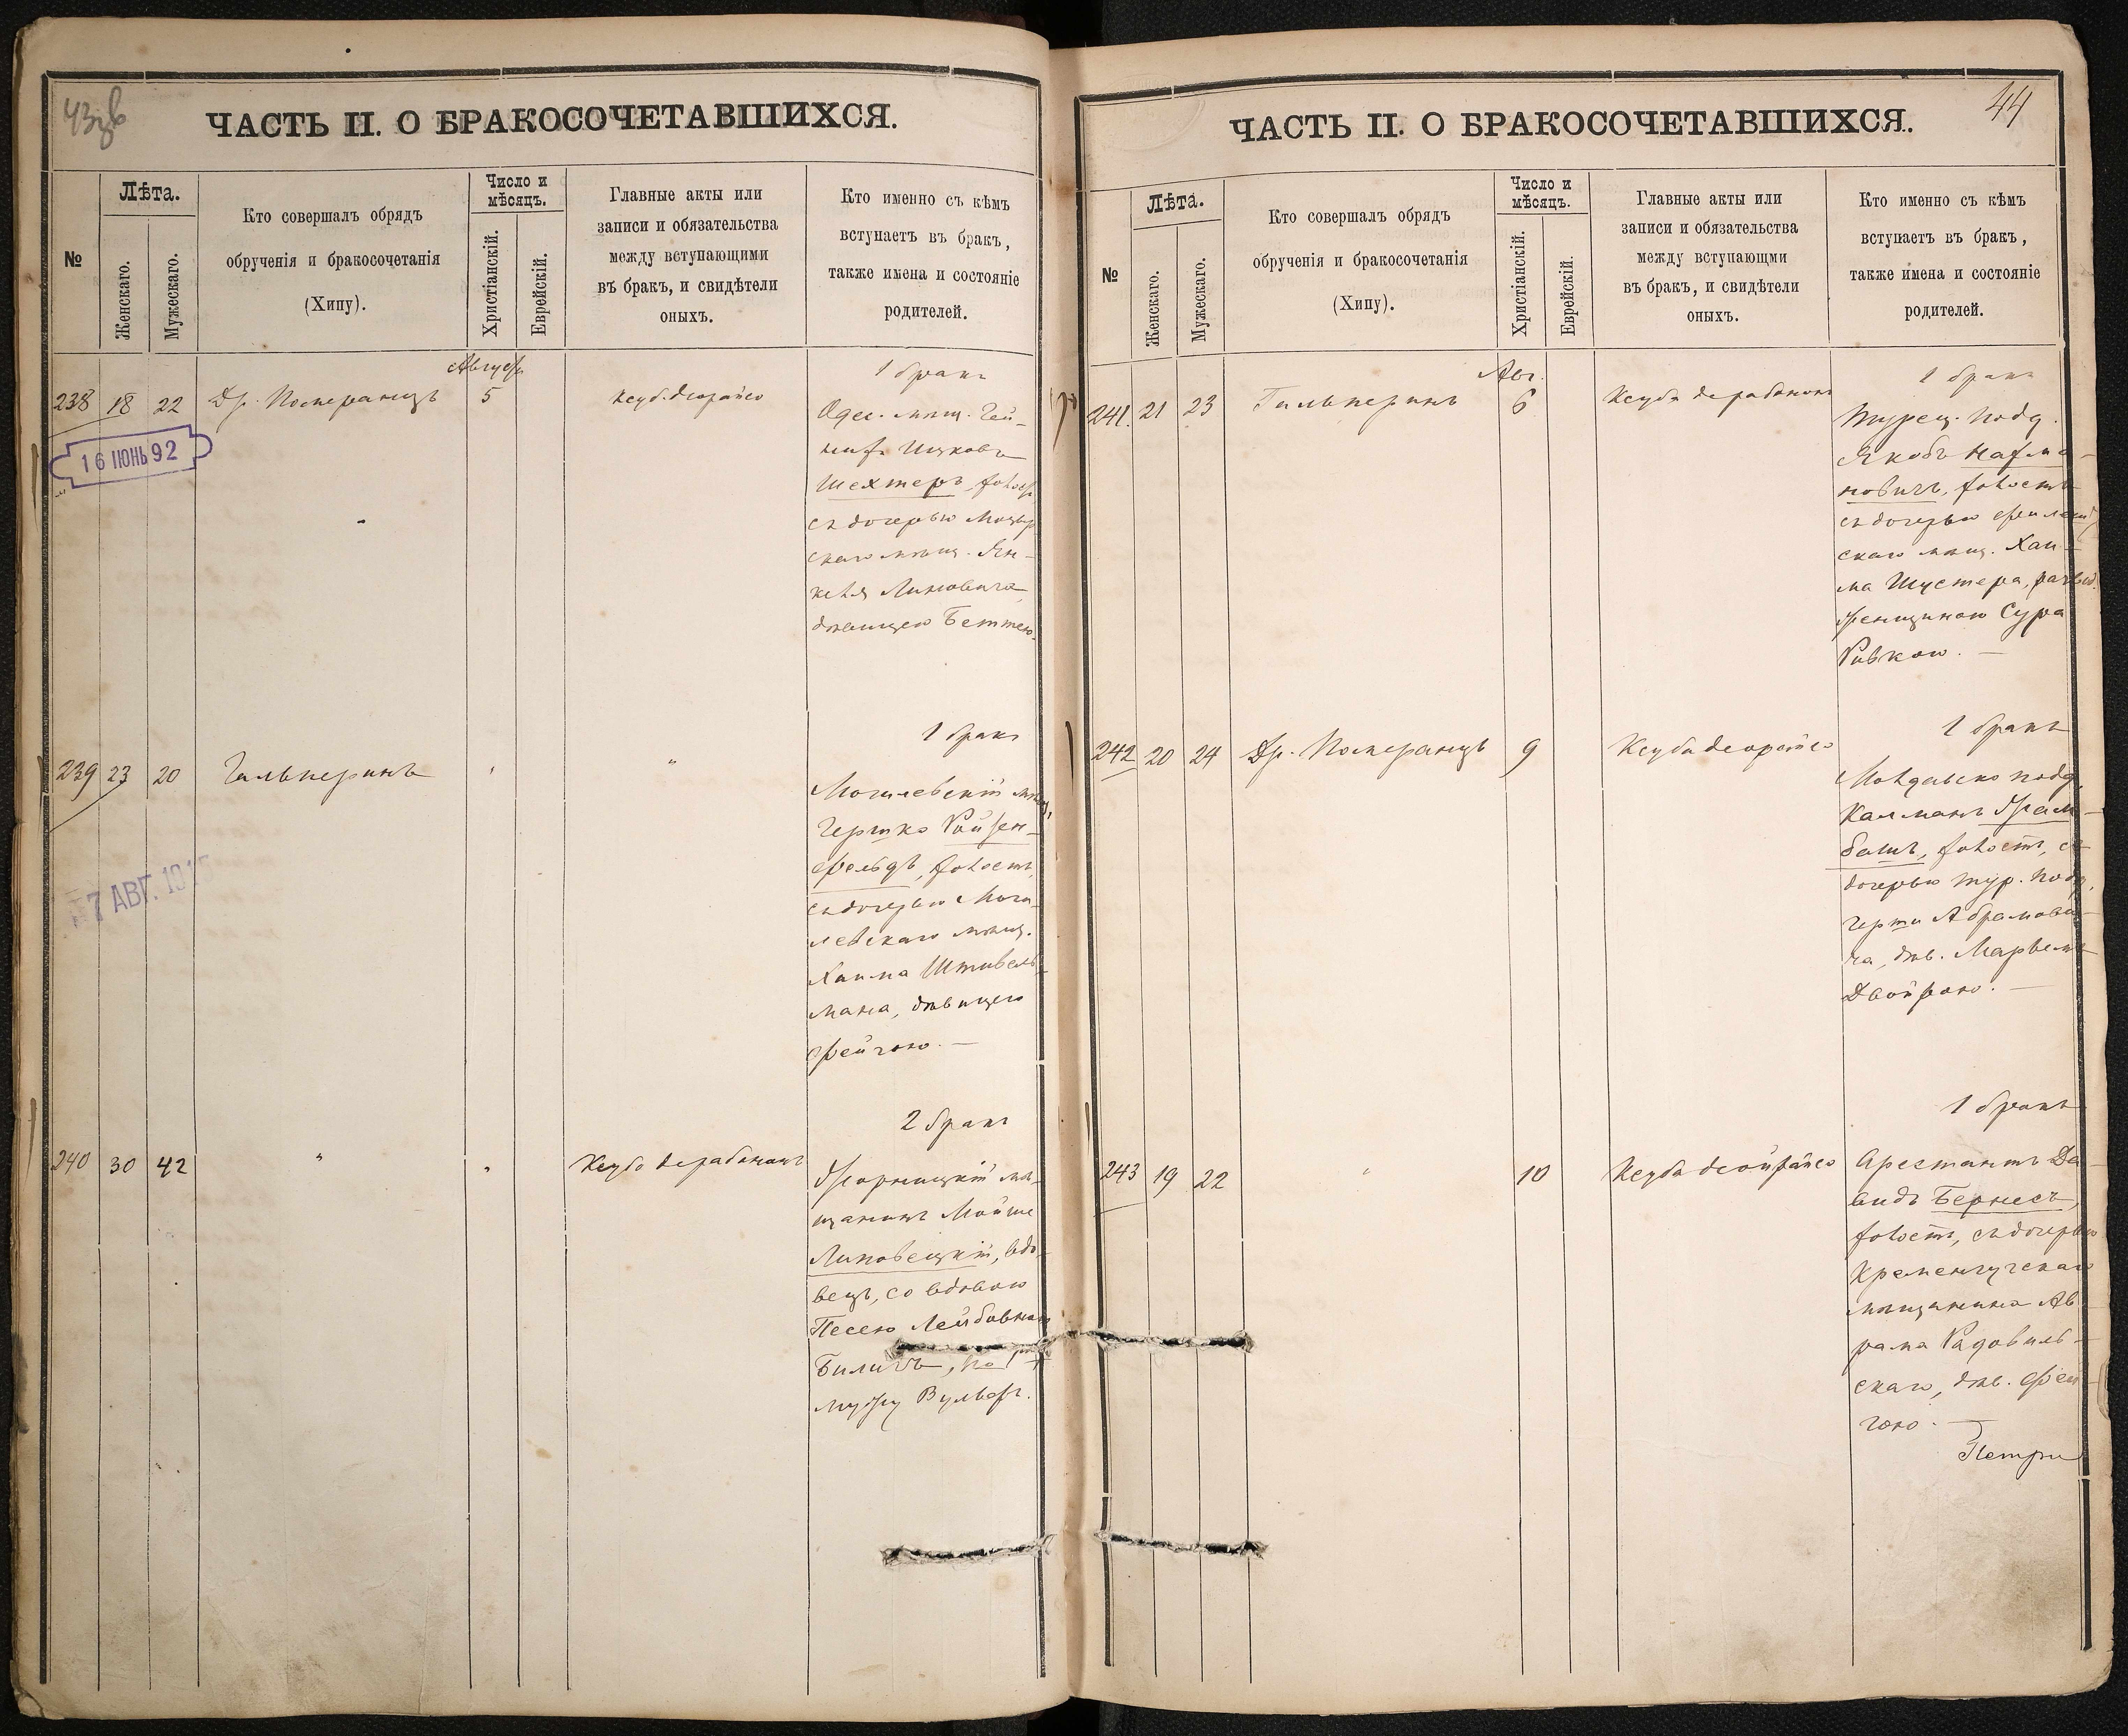 43зв
ЧАСТЬ II. О БРАКОСОЧЕТАВШИХСЯ.
№
Лѣта.
Женскаго.
Мужескаго.
Кто совершалъ обрядъ
обрученія и бракосочетанія
(Хипу).
Число и
мѣсяцъ.
Христіанскій.
Еврейскій.
Главные акты или
записи и обязательства
между вступающими
въ бракъ, и свидѣтели
оныхъ.
Кто именно съ кѣмъ
вступаетъ въ бракъ,
также имена и состояніе
родителей.
Августъ
238 18 22 Др. Померанцъ 5
1 бракъ
Одес. мѣщ. Гей-
Ицковъ
Шехтеръ, холост
съ дочерью
скаго мѣщ. Ян-
келя Линовича
дѣвицею Беттею.
16 ІЮНЬ 92
1 бракъ
239 23 20 Гальперинъ " "
Могилевскій мѣщ.
Гершко Ройзен-
фельдъ, холост.
съ дочерью Моги-
левскаго мѣщ.
Хаима Штивель-
мана, дѣвицею
Фейгою. —
7 АВГ. 191
2 бракъ
240 30 42 " " Кеуба дерабононъ
мѣ-
щанинъ Мойше
Липовецкій, вдо-
вецъ, со вдовою
Песею Лейбовною
Биличъ, по
мужу Вульфъ.
44
ЧАСТЬ II. О БРАКОСОЧЕТАВШИХСЯ.
№
Лѣта.
Женскаго.
Мужескаго.
Кто совершалъ обрядъ
обрученія и бракосочетанія
(Хипу).
Число и
мѣсяцъ.
Христіанскій.
Еврейскій.
Главные акты или
записи и обязательства
между вступающми
въ бракъ, и свидѣтели
оныхъ.
Кто именно съ кѣмъ
вступаетъ въ бракъ,
также имена и состояніе
родителей.
Авг.
241. 21 23 Гальперинъ 6 Кеуба дерабононъ
1 бракъ
Турец. подд.
Якобъ Нахма-
новичъ, холостъ
съ дочерью
скаго мѣщ. Хаи-
ма Шустера, развед.
женщиною Сура
Ривкою. —
1 бракъ
242 20 24 Др. Померанцъ 9 Кеуба деорайсо
Молдавско подд.
Калманъ Грам-
башъ, холост, съ
дочерью тур. подд.
Герши Абрамови-
ча, дѣв.
Двойрою. —
1 бракъ
243 19 22 " 10 Кеуба деойрайсо
Арестантъ Да-
видъ Бернесъ,
холост, съ дочерью
Кременчугскаго
мѣщанина Ав-
рама Радовиль-
скаго, дѣв. Фей-
гою. —
Петри